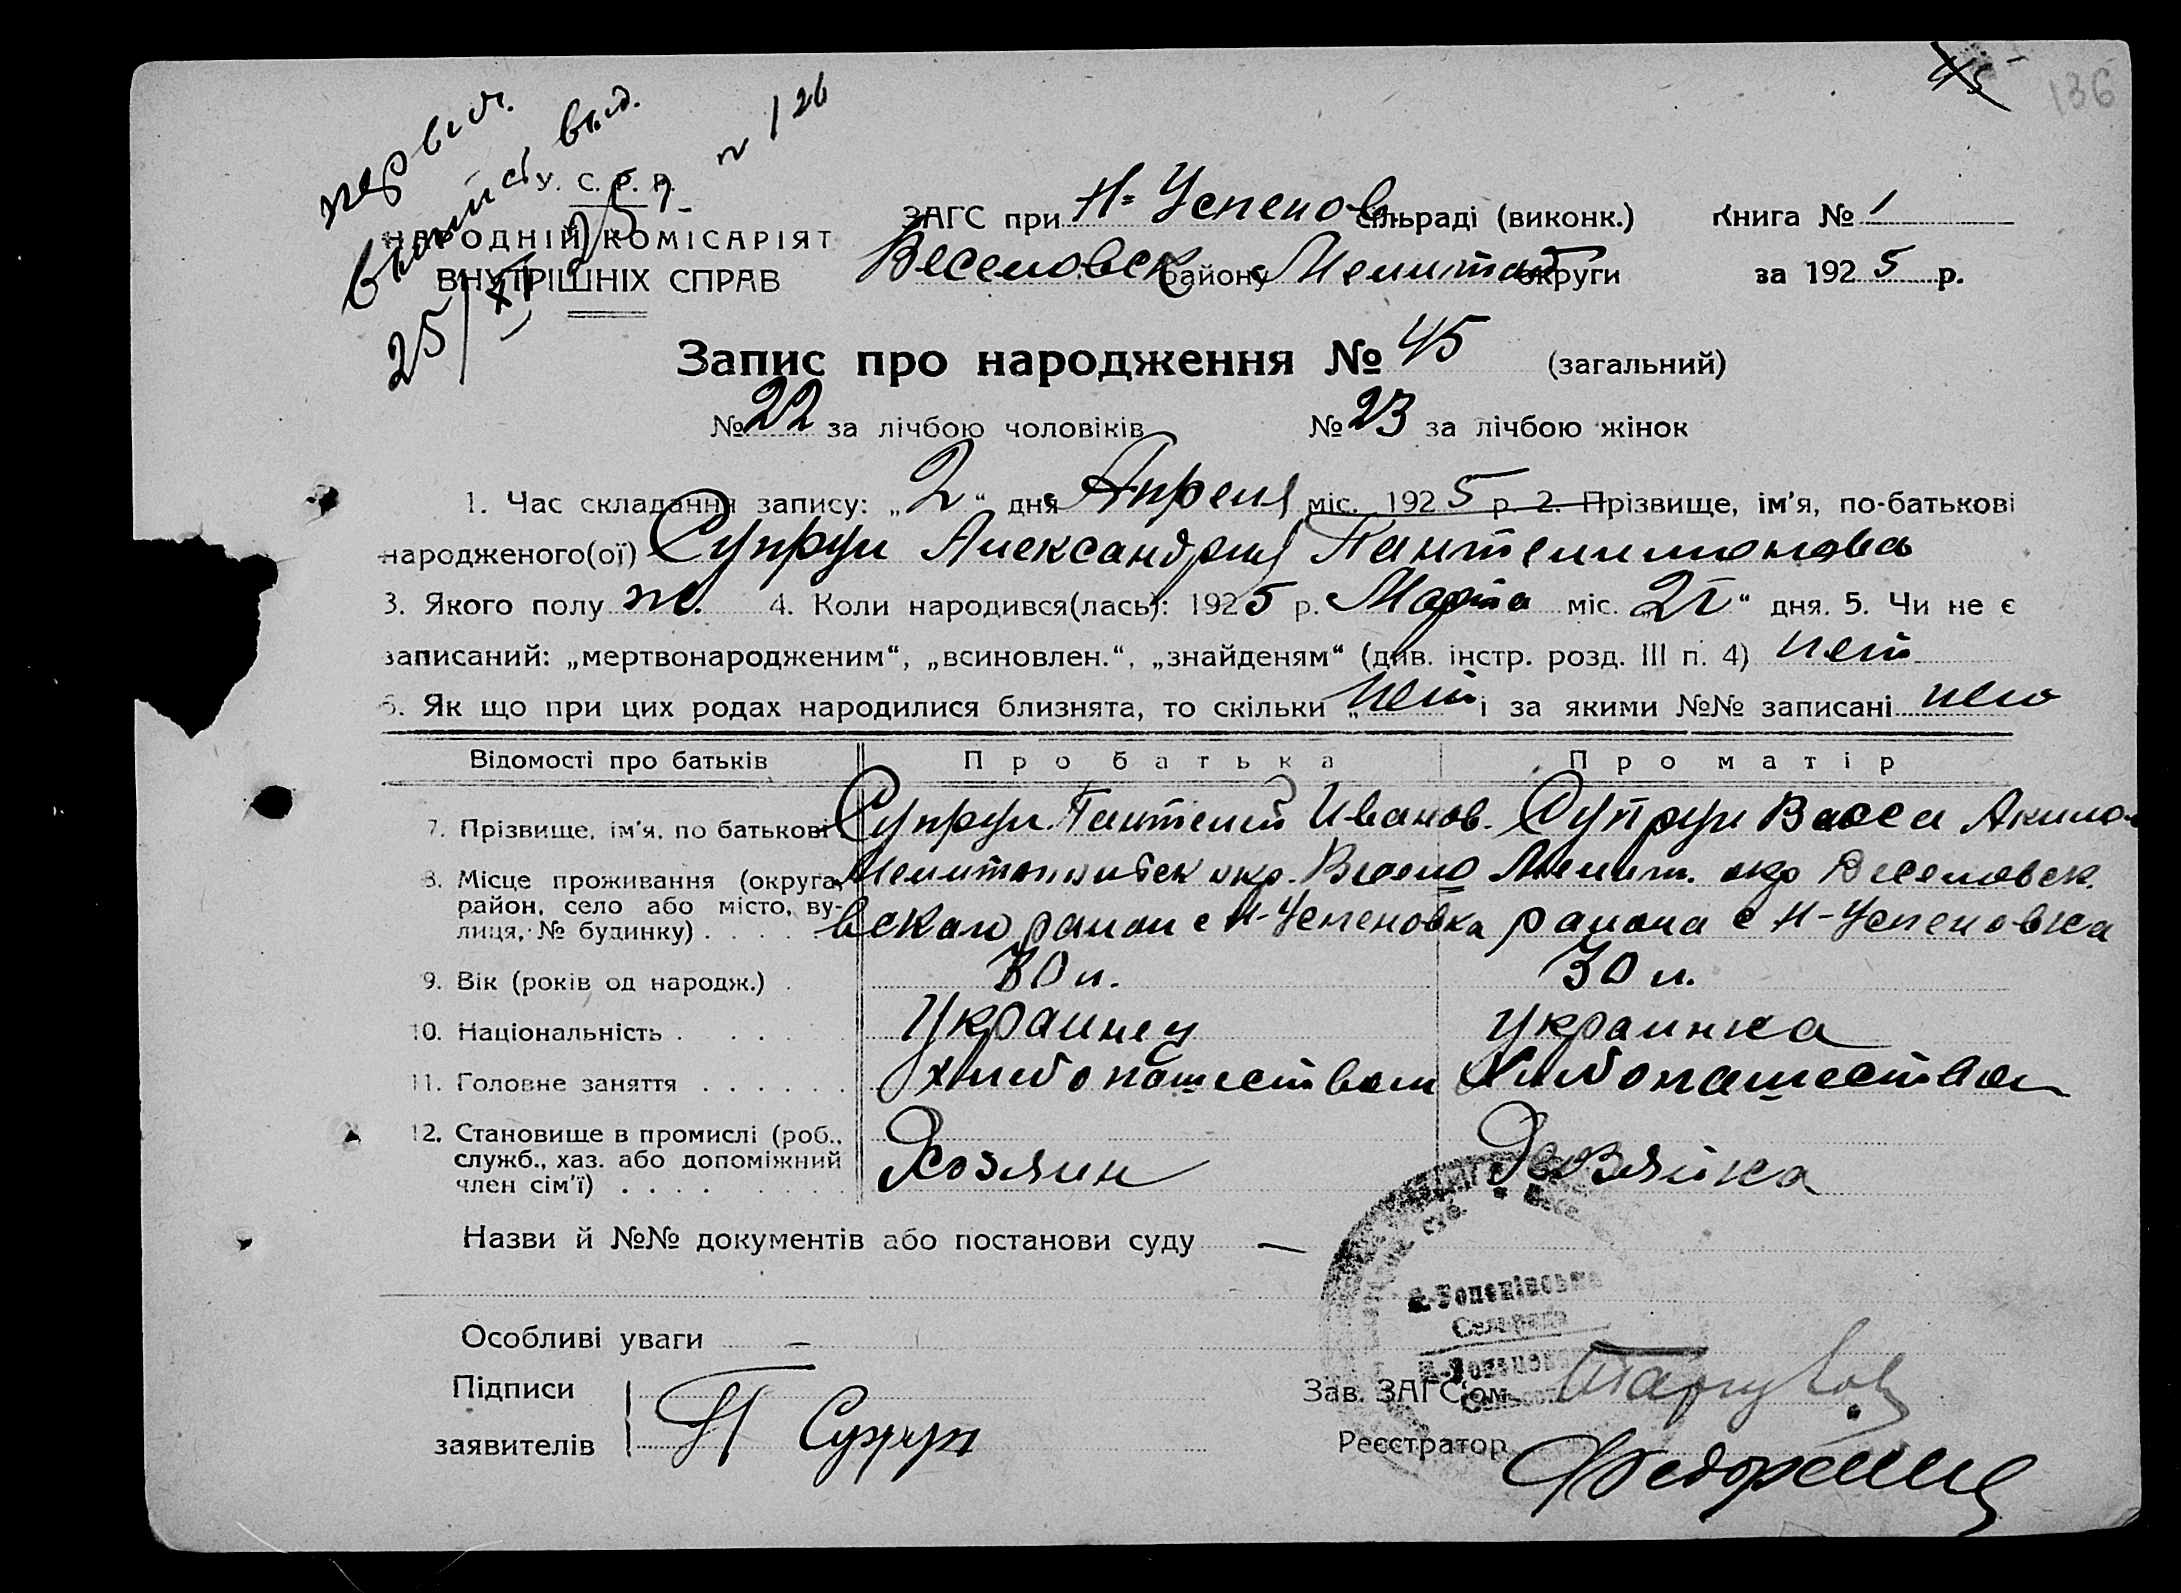 45
136
первич.
выпись выд.
25/XI 257- № 126
У. С. Р. Р.
НАРОДНІЙ КОМІСАРІЯТ
ВНУТРІШНІХ СПРАВ
ЗАГС при Н-Успенов сільраді (виконк.) Книга № 1
Веселовск району Мелитоп округи за 1925 р.
Запис про народження № 45 (загальний)
№ 22 за лічбою чоловіків № 23 за лічбою жінок
1. Час складання запису: „2“ дня Апреля міс. 1925 р. 2. Прізвище, ім'я, по-батькові
народженого(ої) Супрун Александрия Пантелимонова
3. Якого полу ж. 4. Коли народився(лась): 1925 р. Марта міс. „21“ дня. 5. Чи не є
записаний: „мертвонародженим“, „всиновлен.“, „знайденям“ (див. інстр. розд. III п. 4) нет
6. Як що при цих родах народилися близнята, то скільки „нет і за якими №№ записані нет
Відомості про батьків Про батька Про матір
7. Прізвище, ім'я, по батькові Супрун Пантелей Иванов. Супрун Васса Акимов
8. Місце проживання (округа, Мелитопольск окр. Весело Мелит. окр Веселовск.
район, село або місто, ву- вского район с Н-Успеновка района с Н-Успеновка
лиця, № будинку) . . . .
9. Вік (років од народж.) . 30 л. 30 л.
10. Національність . . . . Украинец Украинка
11. Головне заняття . . . . . . Хлебопашеством Хлебопашеством
12. Становище в промислі (роб.,
служб., хаз. або допоміжний Хозяин Хозяйка
член сім'ї) . . . .
Назви й №№ документів або постанови суду —
Н.-Успенівська
Сельрада
Особливі уваги —
Підписи
Зав. ЗАГС'ом
заявителів П Супрун
Реєстратор Федоренко